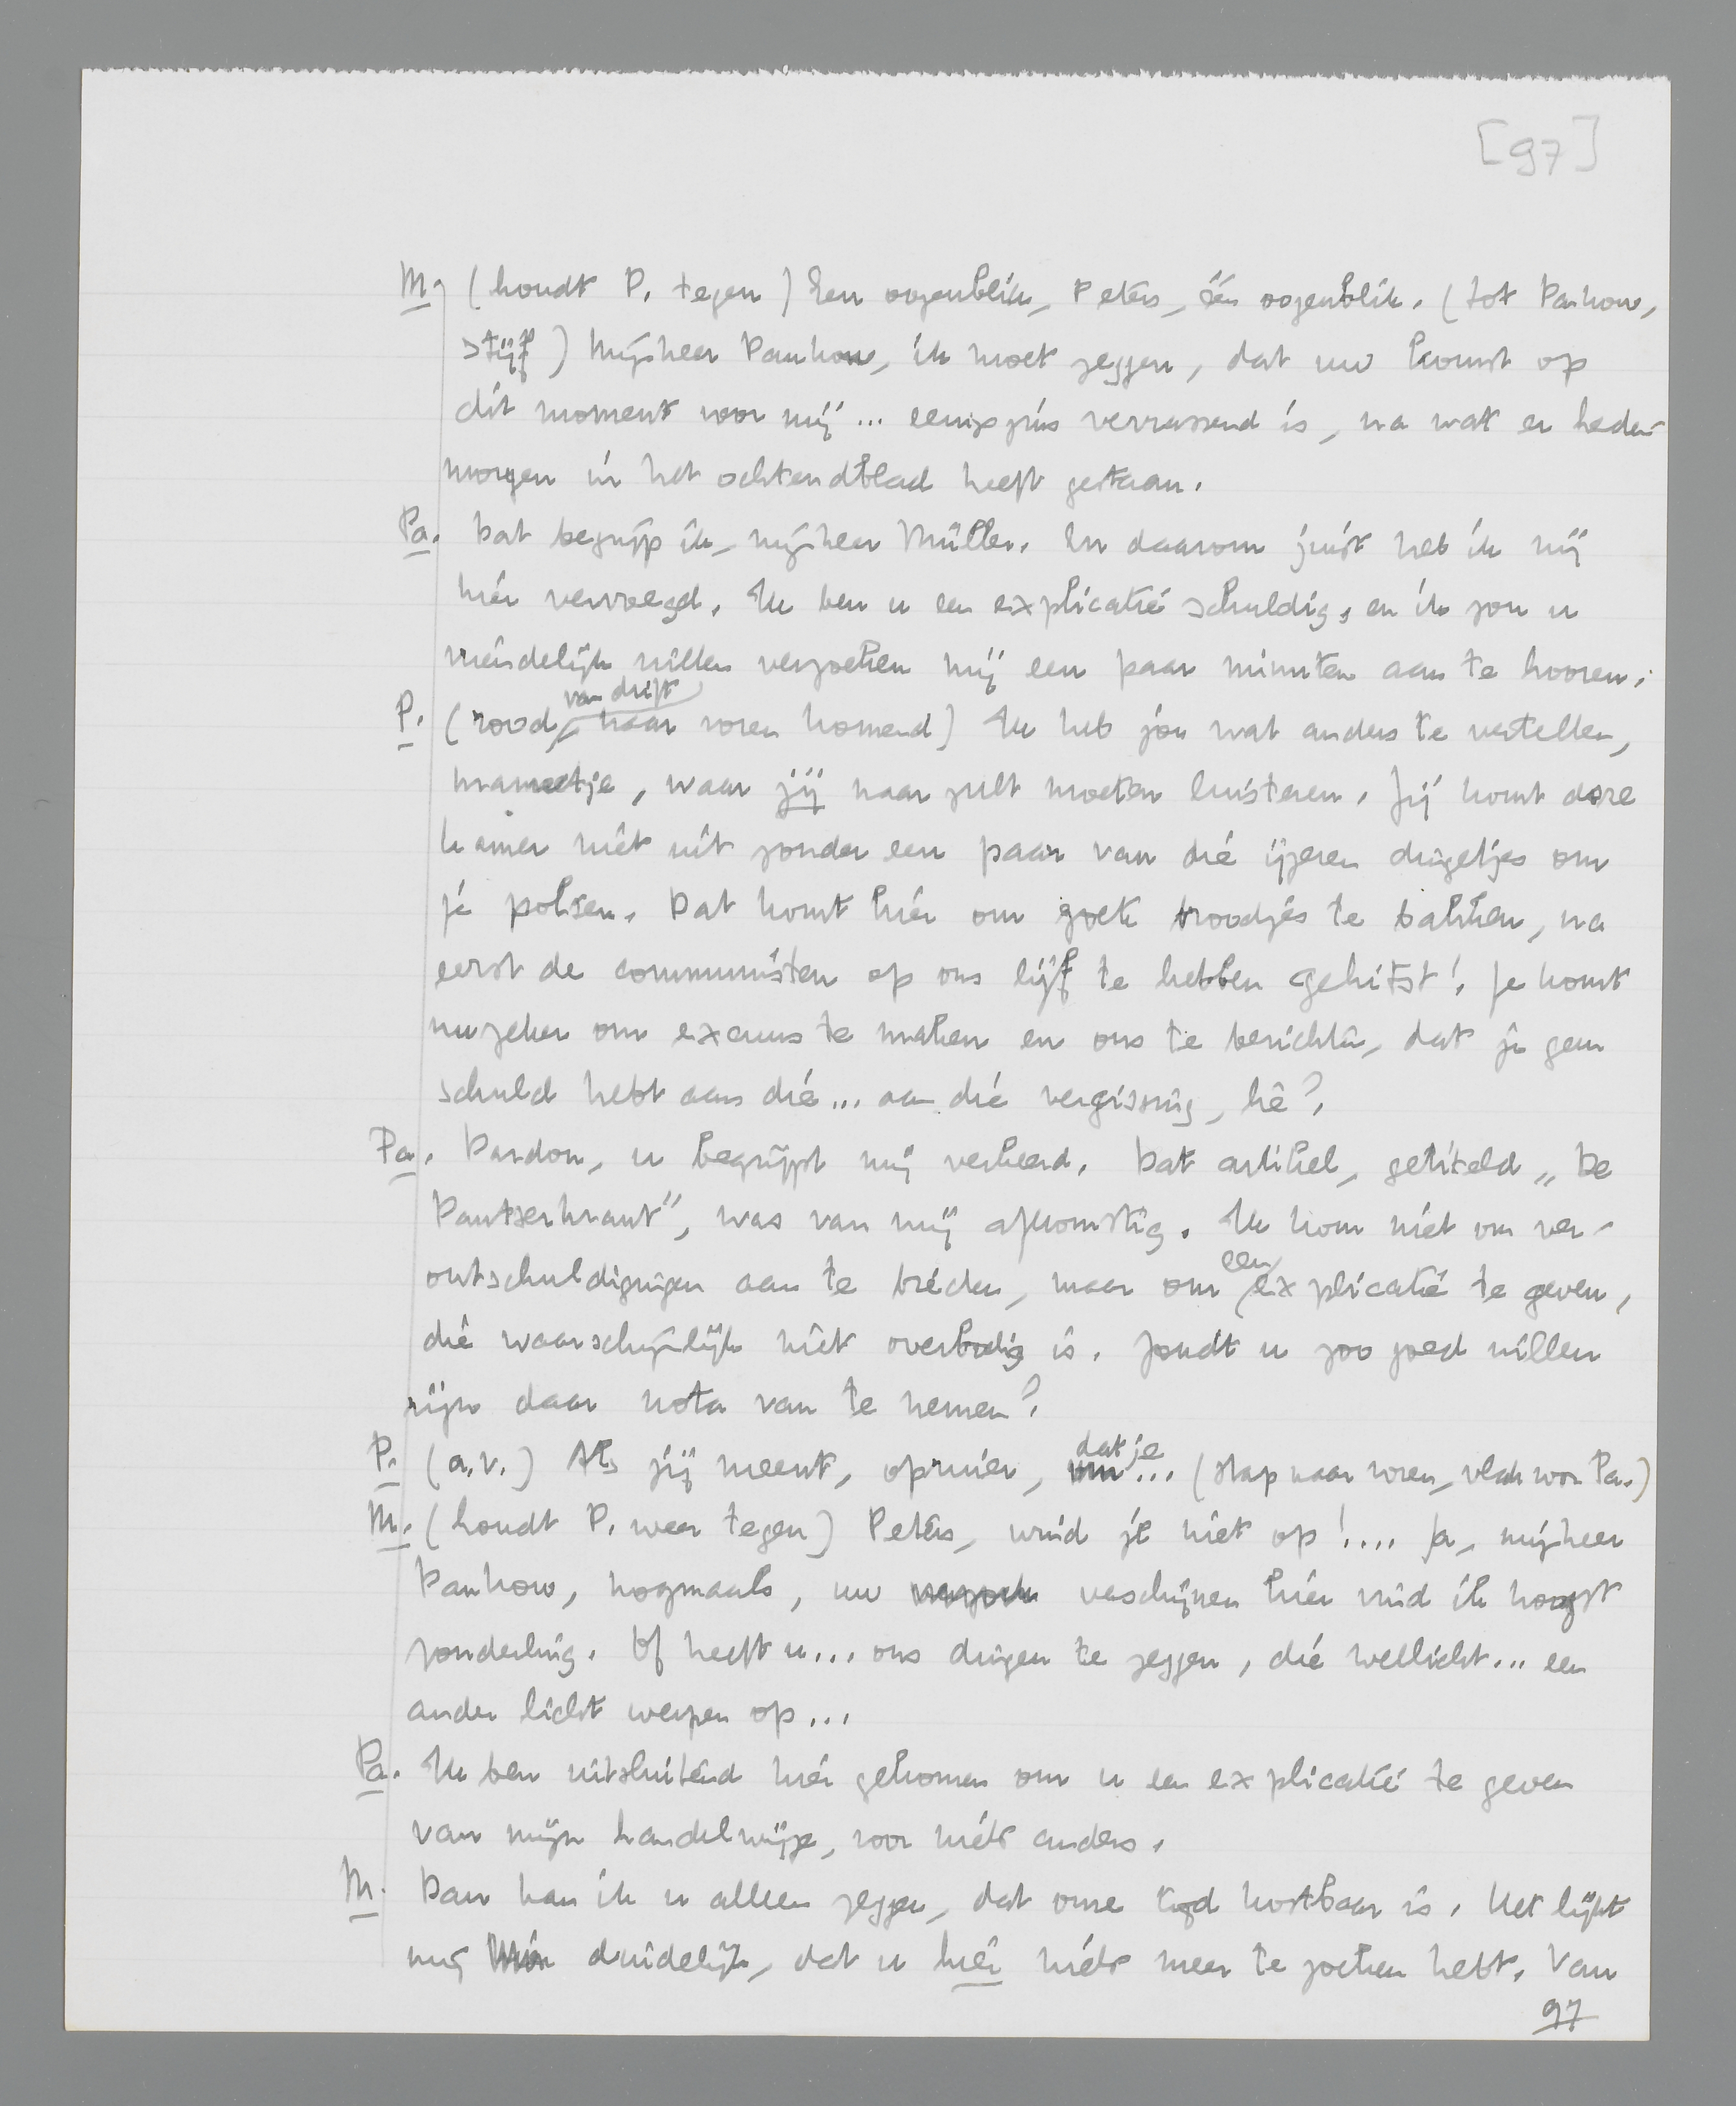 [97]
M. (houdt P. tegen) Een oogenblik, Peters, één oogenblik. (tot Pankow,
stijf) Mijnheer Pankow, ik moet zeggen, dat uw komst op
dit moment voor mij ... eenigszins verrassend is, na wat er heden-
morgen in het ochtendblad heeft gestaan.
Pa. Dat begrijp ik, mijnheer Müller. En daarom juist heb ik mij
hier vervoegd. Ik ben u een explicatie schuldig, en ik zou u
vriendelijk willen verzoeken mij een paar minuten aan te hooren.
van drift
P. (rood, naar voren komend) Ik heb jou wat anders te vertellen,
mannetje, waar jij naar zult moeten luisteren. Jij komt deze
kamer niet uit zonder een paar van die ijzeren dingetjes om
je polsen. Dat komt hier om zoete broodjes te bakken, na
eerst de communisten op ons lijf te hebben gehitst! Je komt
nu zeker om excuus te maken en ons te berichten, dat je geen
schuld hebt aan die ... aan die vergissing, hè?
Pa. Pardon, u begrijpt mij verkeerd. Dat artikel, getiteld „De
Pantserkrant”, was van mij afkomstig. Ik kom niet om ver-
ontschuldigingen aan te bieden, maar om een explicatie te geven,
die waarschijnlijk niet overbodig is. Zoudt u zoo goed willen
zijn daar nota van te nemen?
P. (a.v.) Als jij meent, opruier, dat je ... (stap naar voren, vlak voor Pa.)
M. (houdt P. weer tegen) Peters, wind je niet op! .... Ja, mijnheer
Pankow, nogmaals, uw verschijnen hier vind ik hoogst
zonderling. Of heeft u ... ons dingen te zeggen, die wellicht ... een
ander licht werpen op ...
Pa. Ik ben uitsluitend hier gekomen om u een explicatie te geven
van mijn handelwijze, voor niets anders.
M. Dan kan ik u alleen zeggen, dat onze tijd kostbaar is. Het lijkt
mij duidelijk, dat u hier niets meer te zoeken hebt. Van
97